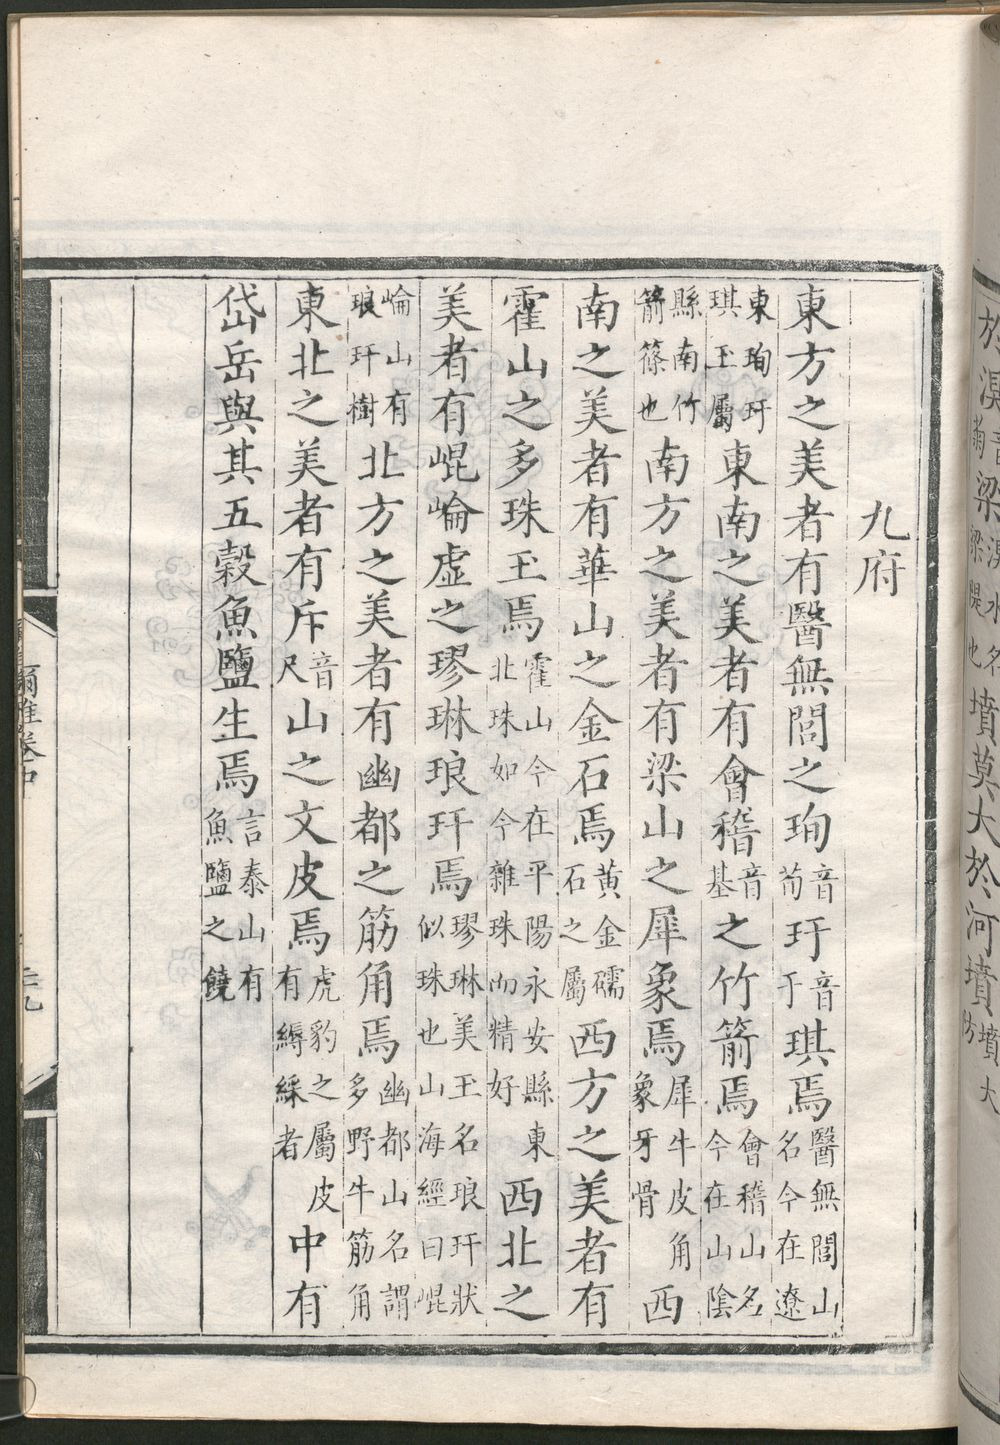 於湨音菊梁湨水名梁隄也墳莫大於河墳墳大防
九府
東方之美者有醫無閭之珣音荀玗音于琪焉醫無閭山名今在遼
東珣玗琪玉屬東南之美者有會稽音基之竹箭焉會稽山名今在山陰
縣南竹箭篠也南方之美者有梁山之犀象焉犀牛皮角象牙骨西
南之美者有華山之金石焉黃金礝石之屬西方之美者有
霍山之多珠玉焉霍山今在平陽永安縣東北珠如今雜珠而精好西北之
美者有崐崘虛之璆琳琅玕焉璆琳美玉名琅玕狀似珠也山海經曰崐
崘山有琅玕樹北方之美者有幽都之筋角焉幽都山名謂多野牛筋角
東北之美者有斥音尺山之文皮焉虎豹之屬皮有縟綵者中有
岱岳與其五穀魚鹽生焉言泰山有魚鹽之饒
爾雅卷中